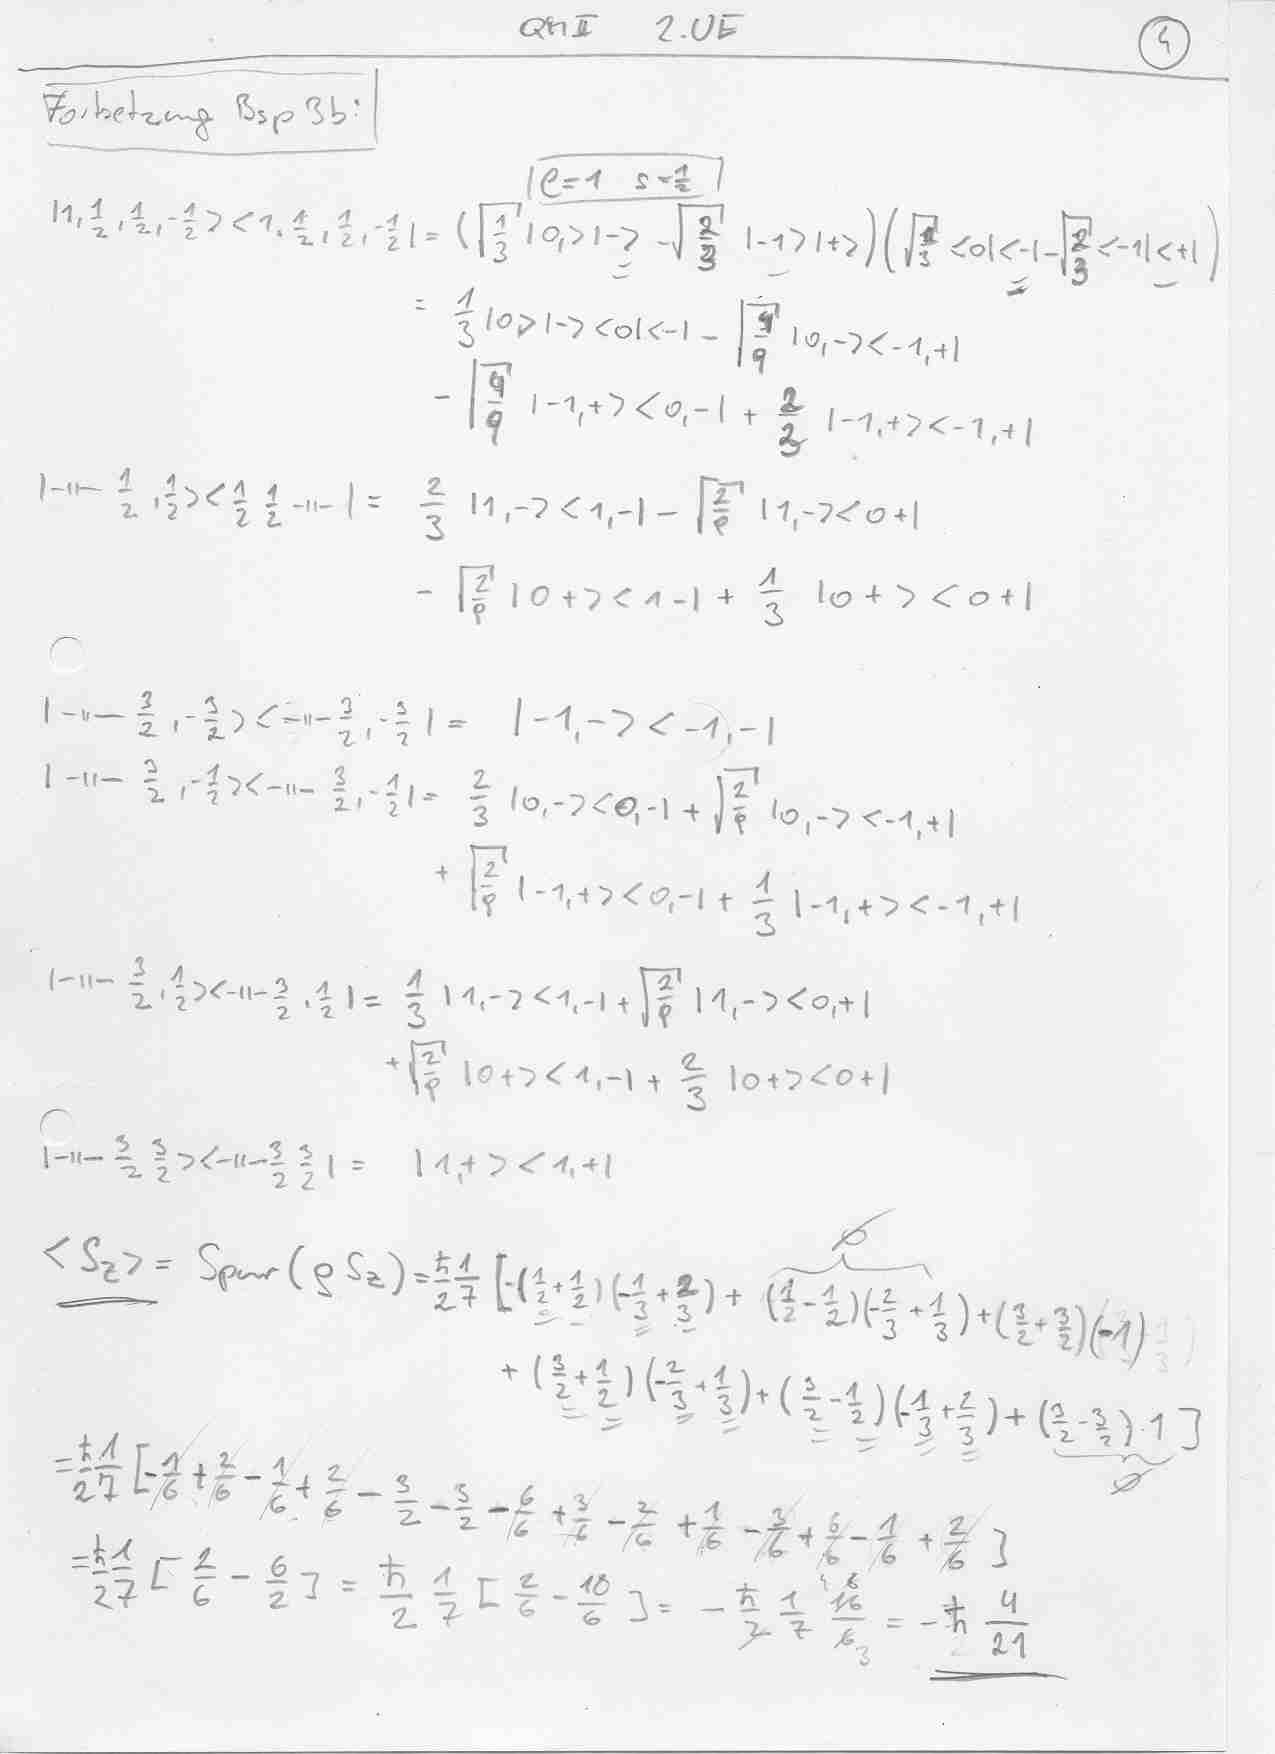 QM II 2.UE 4
Fortsetzung Bsp 3b:
l=1 s=1/2
|1, 1/2, 1/2, -1/2> <1, 1/2, 1/2, -1/2| = (√1/3 |0,>|-> - √2/3 |-1>|+>)(√1/3 <0|<-| - √2/3 <-1|<+|)
= 1/3 |0>|-> <0|<-| - √4/9 |0,-> <-1,+|
- √4/9 |-1,+> <0,-| + 2/3 |-1,+> <-1,+|
|-"- 1/2, 1/2> <1/2 1/2 -"-| = 2/3 |1,-> <1,-| - √2/9 |1,-> <0+|
- √2/9 |0+> <1-| + 1/3 |0+> <0+|
|-"- 3/2, -3/2> <-"- 3/2, -3/2| = |-1,-> <-1,-|
|-"- 3/2, -1/2> <-"- 3/2, -1/2| = 2/3 |0,-> <0,-| + √2/9 |0,-> <-1,+|
+ √2/9 |-1,+> <0,-| + 1/3 |-1,+> <-1,+|
|-"- 3/2, 1/2> <-"- 3/2, 1/2| = 1/3 |1,-> <1,-| + √2/9 |1,-> <0,+|
+ √2/9 |0+> <1,-| + 2/3 |0+> <0+|
|-"- 3/2 3/2> <-"- 3/2 3/2| = |1,+> <1,+|
0
<Sz> = Spur(ρ Sz) = ħ/2 1/7 [-(1/2 + 1/2)(-1/3 + 2/3) + (1/2 - 1/2)(-2/3 + 1/3) + (3/2 + 3/2)(-1)
+ (3/2 + 1/2)(-2/3 + 1/3) + (3/2 - 1/2)(-1/3 + 2/3) + (3/2 - 3/2) · 1]
0
= ħ/2 1/7 [-1/6 + 2/6 - 1/6 + 2/6 - 3/2 - 3/2 - 6/6 + 3/6 - 2/6 + 1/6 - 3/6 + 6/6 - 1/6 + 2/6]
= ħ/2 1/7 [2/6 - 6/2] = ħ/2 1/7 [2/6 - 18/6] = - ħ/2 1/7 16/6 8 3 = - ħ 4/21